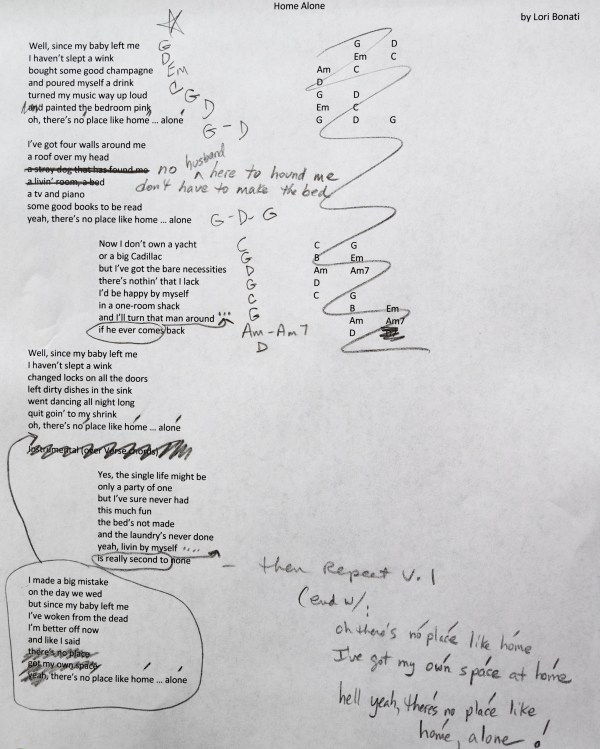 Home Alone
by Lori Bonati
Well, since my baby left me G
I haven't slept a wink D
bought some good champagne Em
and poured myself a drink C
turned my music way up loud G
And painted the bedroom pink D
oh, there's no place like home ... alone G - D
G D
Em C
Am C
D
G D
Em C
G D G
I've got four walls around me
a roof over my head
a stray dog that has found me no husband here to hound me
a livin' room, a bed don't have to make the bed
a tv and piano
some good books to be read
yeah, there's no place like home ... alone G - D - G
Now I don't own a yacht C
or a big Cadillac G
but I've got the bare necessities D
there's nothin' that I lack G
I'd be happy by myself C
in a one-room shack G
and I'll turn that man around ... Am - Am7
if he ever comes back D
C G
B Em
Am Am7
D
C G
B Em
Am Am7
D
Well, since my baby left me
I haven't slept a wink
changed locks on all the doors
left dirty dishes in the sink
went dancing all night long
quit goin' to my shrink
oh, there's no place like home ... alone
Instrumental (over Verse chords)
Yes, the single life might be
only a party of one
but I've sure never had
this much fun
the bed's not made
and the laundry's never done
yeah, livin by myself ....
is really second to none - then Repeat V. 1
(end w/:
oh there's no place like home
I've got my own space at home
hell yeah, there's no place like
home, alone!
I made a big mistake
on the day we wed
but since my baby left me
I've woken from the dead
I'm better off now
and like I said
there's no place
got my own space
yeah, there's no place like home ... alone